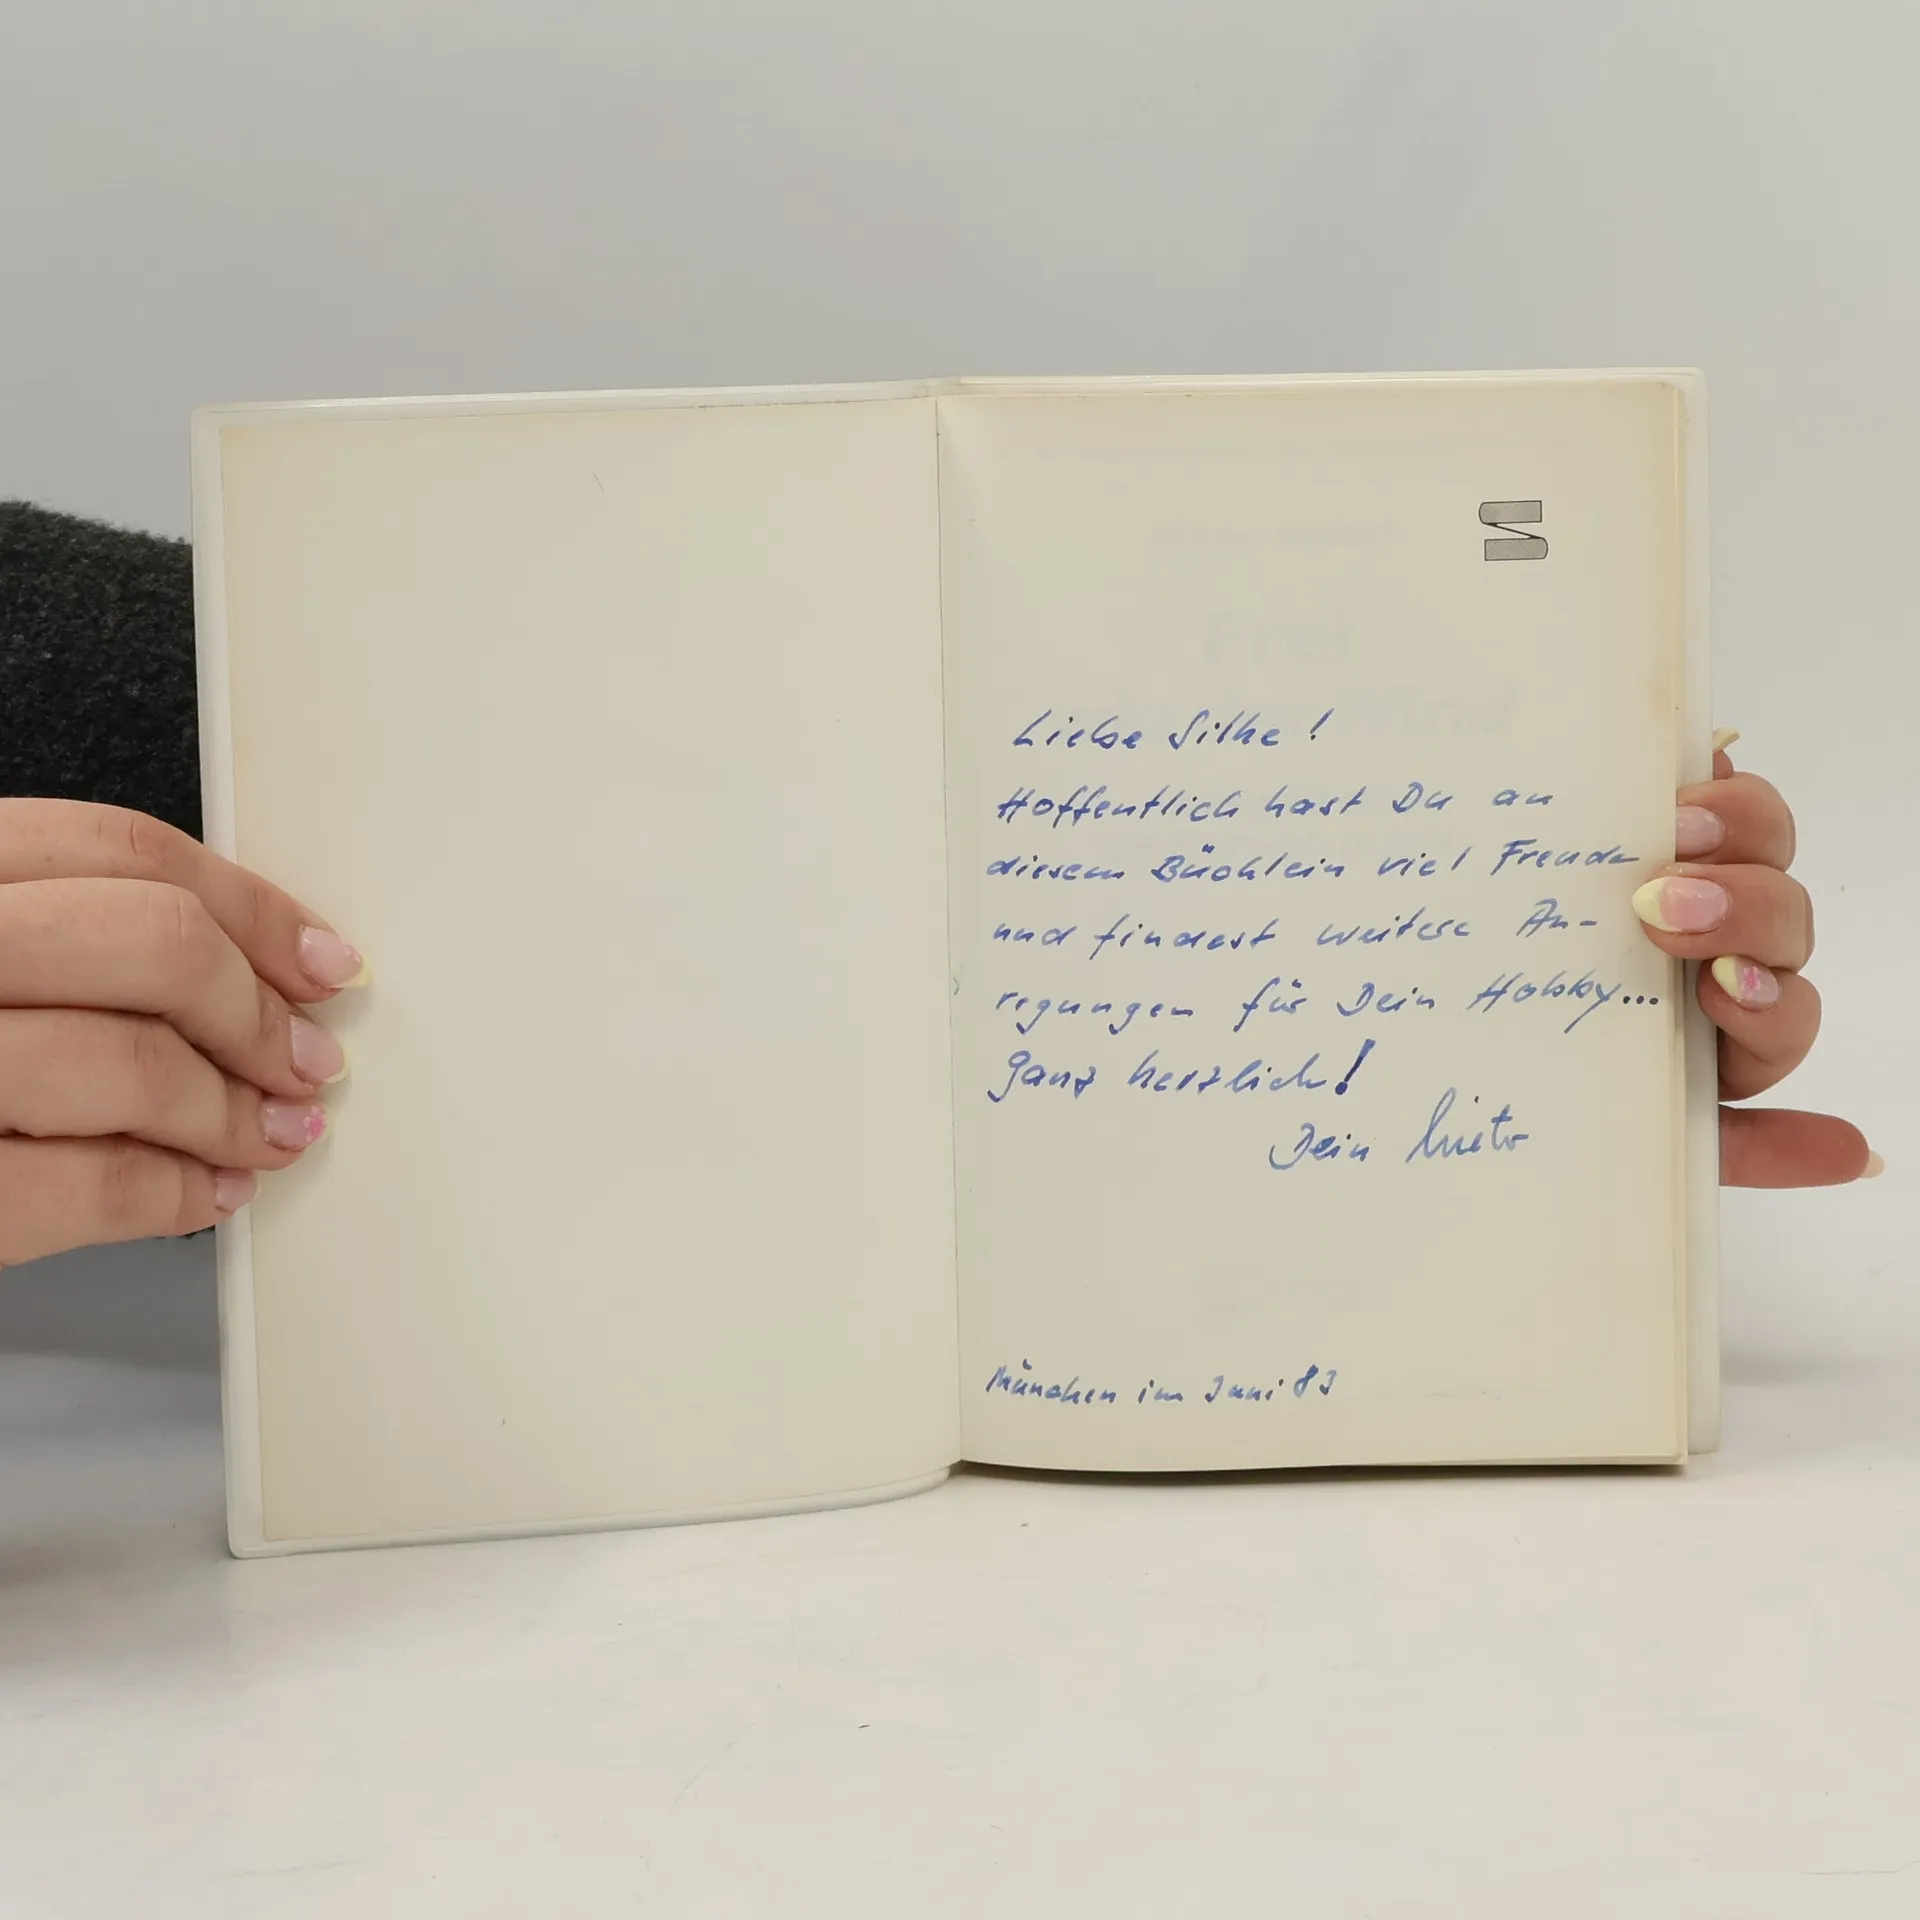 Frei
Wind
Liebe Silke!
Hoffentlich hast Du an
diesem Büchlein viel Freude
und findest weitere An-
regungen für Dein Hobby...
Ganz herzlich!
Dein
München im Juni 83